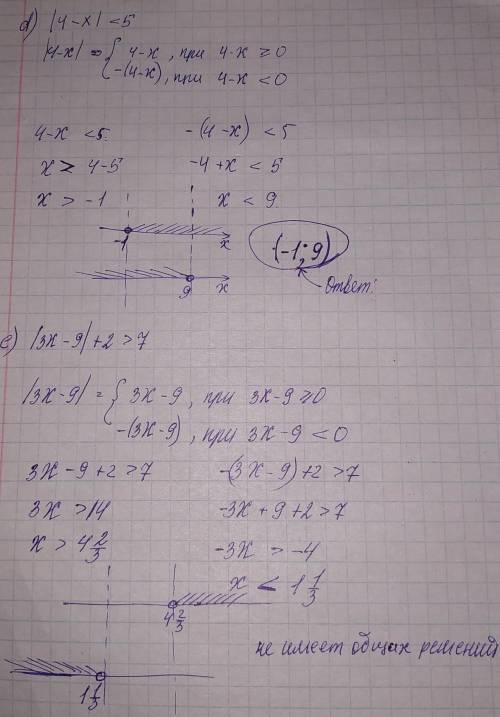 d) |4-x| < 5
|4-x| = { 4-x, при 4-x ≥ 0
-(4-x), при 4-x < 0
4-x < 5 -(4-x) < 5
x > 4-5 -4+x < 5
x > -1 x < 9
-1 x (-1; 9)
9 x Ответ:
e) |3x-9|+2 > 7
|3x-9| = { 3x-9, при 3x-9 ≥ 0
-(3x-9), при 3x-9 < 0
3x-9+2 > 7 -(3x-9)+2 > 7
3x > 14 -3x+9+2 > 7
x > 4 2/3 -3x > -4
x < 1 1/3
4 2/3
не имеет общих решений
1 1/3